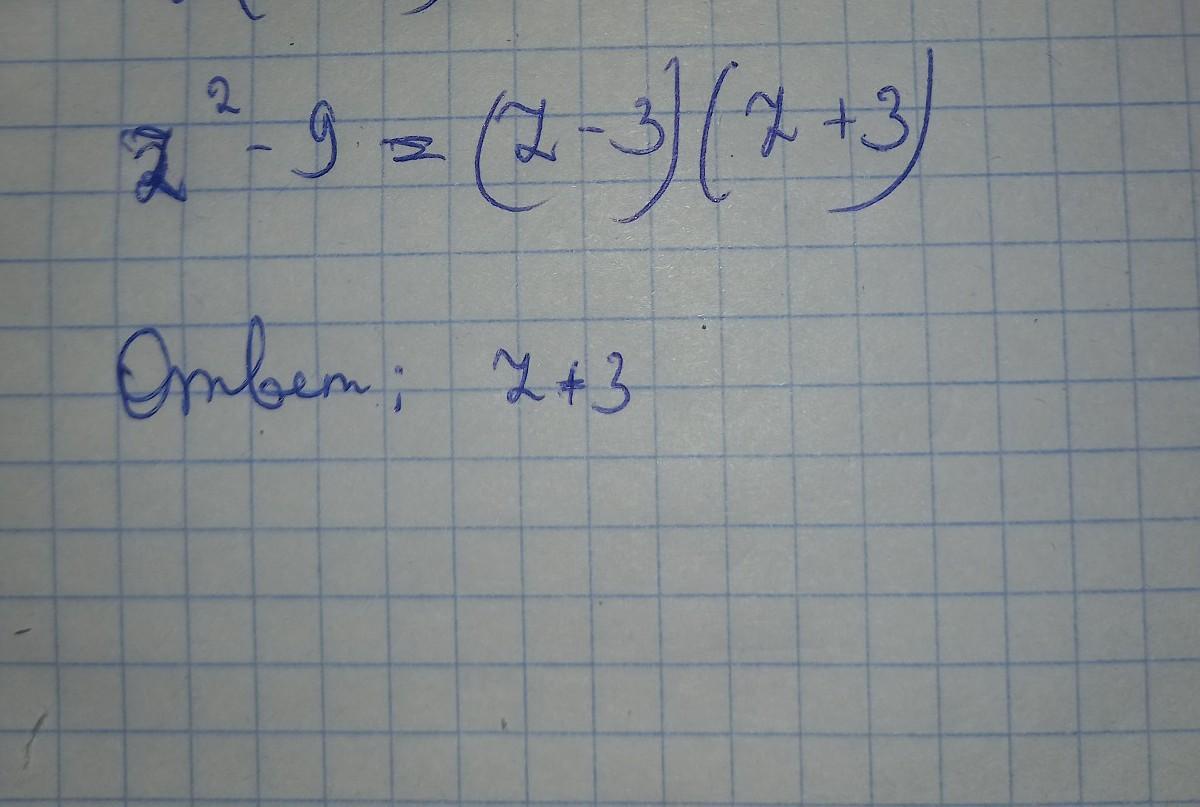 z² - 9 = (z - 3)(z + 3)
Ответ: z + 3